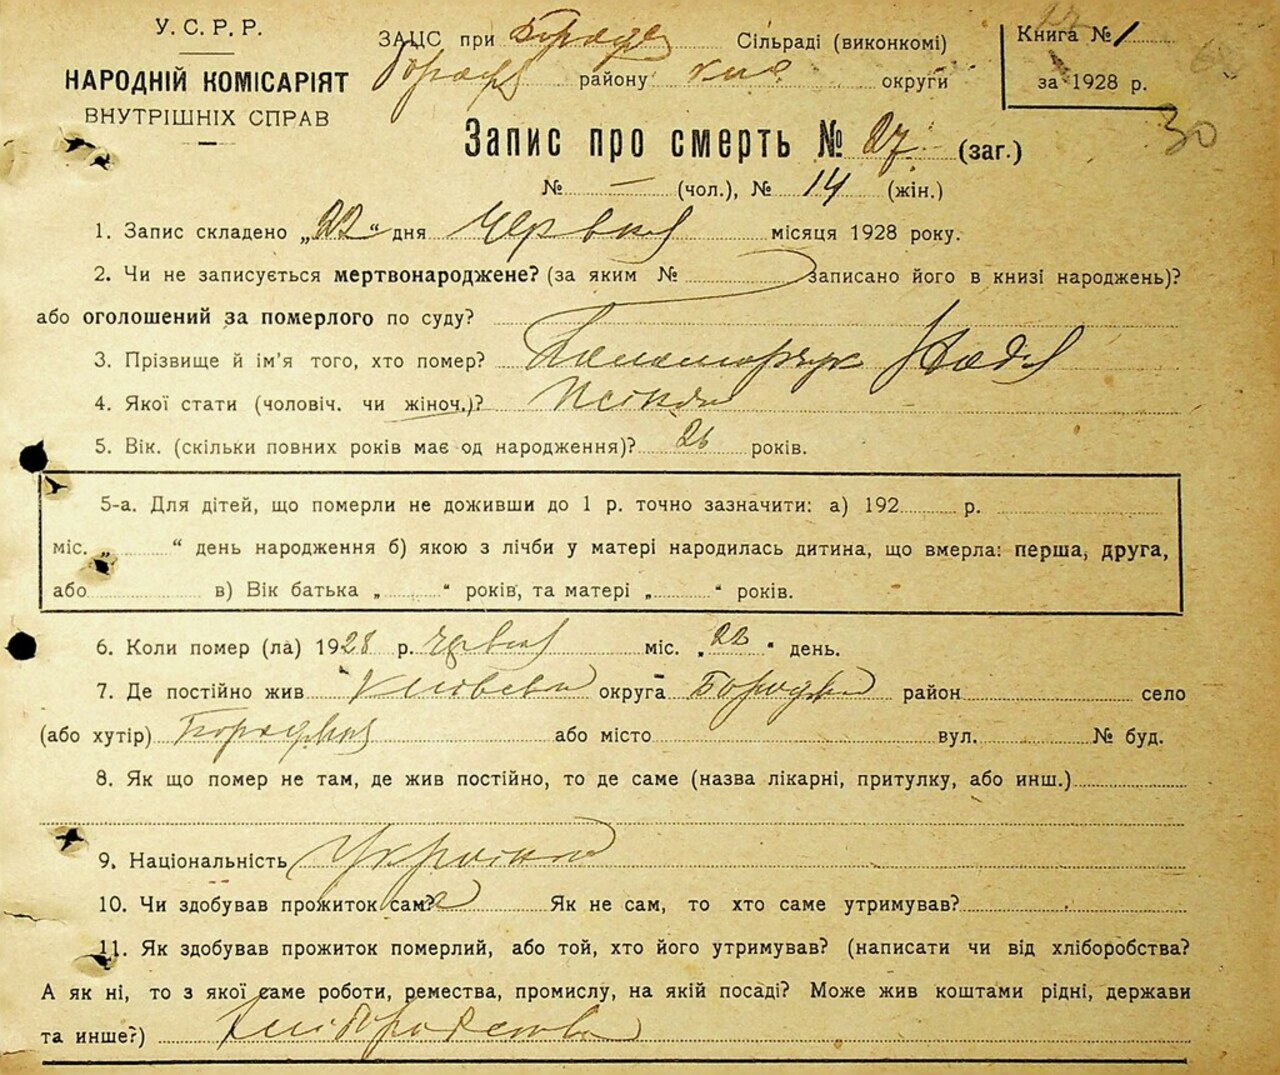 У. С. Р. Р.
НАРОДНІЙ КОМІСАРІЯТ
ВНУТРІШНІХ СПРАВ
ЗАЦС при Бородя Сільраді (виконкомі)
району Київ округи
Книга № 1
за 1928 р.
30
Запис про смерть № 27 (заг.)
№ — (чол.), № 14 (жін.)
1. Запис складено „22“ дня Червня місяця 1928 року.
2. Чи не записується мертвонароджене? (за яким № записано його в книзі народжень)?
або оголошений за померлого по суду?
3. Прізвище й ім'я того, хто помер? Паламарчук Надія
4. Якої стати (чоловіч. чи жіноч.)?
5. Вік. (скільки повних років має од народження)? 26 років.
5-а. Для дітей, що померли не доживши до 1 р. точно зазначити: а) 192 р.
міс. „ “ день народження б) якою з лічби у матері народилась дитина, що вмерла: перша, друга,
або в) Вік батька „ “ років, та матері „ “ років.
6. Коли помер (ла) 1928 р. червня міс. „22“ день.
7. Де постійно жив Київська округа Бородян район село
(або хутір) Бородянка або місто вул. № буд.
8. Як що помер не там, де жив постійно, то де саме (назва лікарні, притулку, або инш.)
9. Національність Українка
10. Чи здобував прожиток сам? Як не сам, то хто саме утримував?
11. Як здобував прожиток померлий, або той, хто його утримував? (написати чи від хліборобства?
А як ні, то з якої саме роботи, ремества, промислу, на якій посаді? Може жив коштами рідні, держави
та инше?) хліборобства